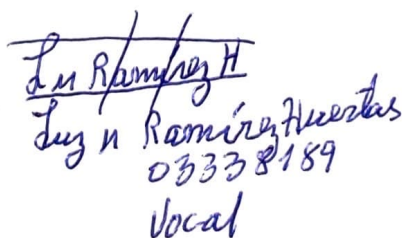 Lu Ramírez H
Luz n Ramírez Huertas
03338189
Vocal